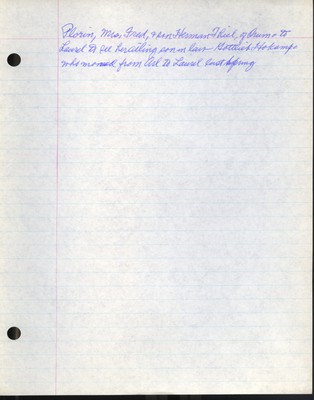 Plorin, Mrs. Fred, & son Herman Thiel, of Avum - to
Laurel to see her ailing son in law - Gottlieb Hokamp
who moved from Ad to Laurel last spring